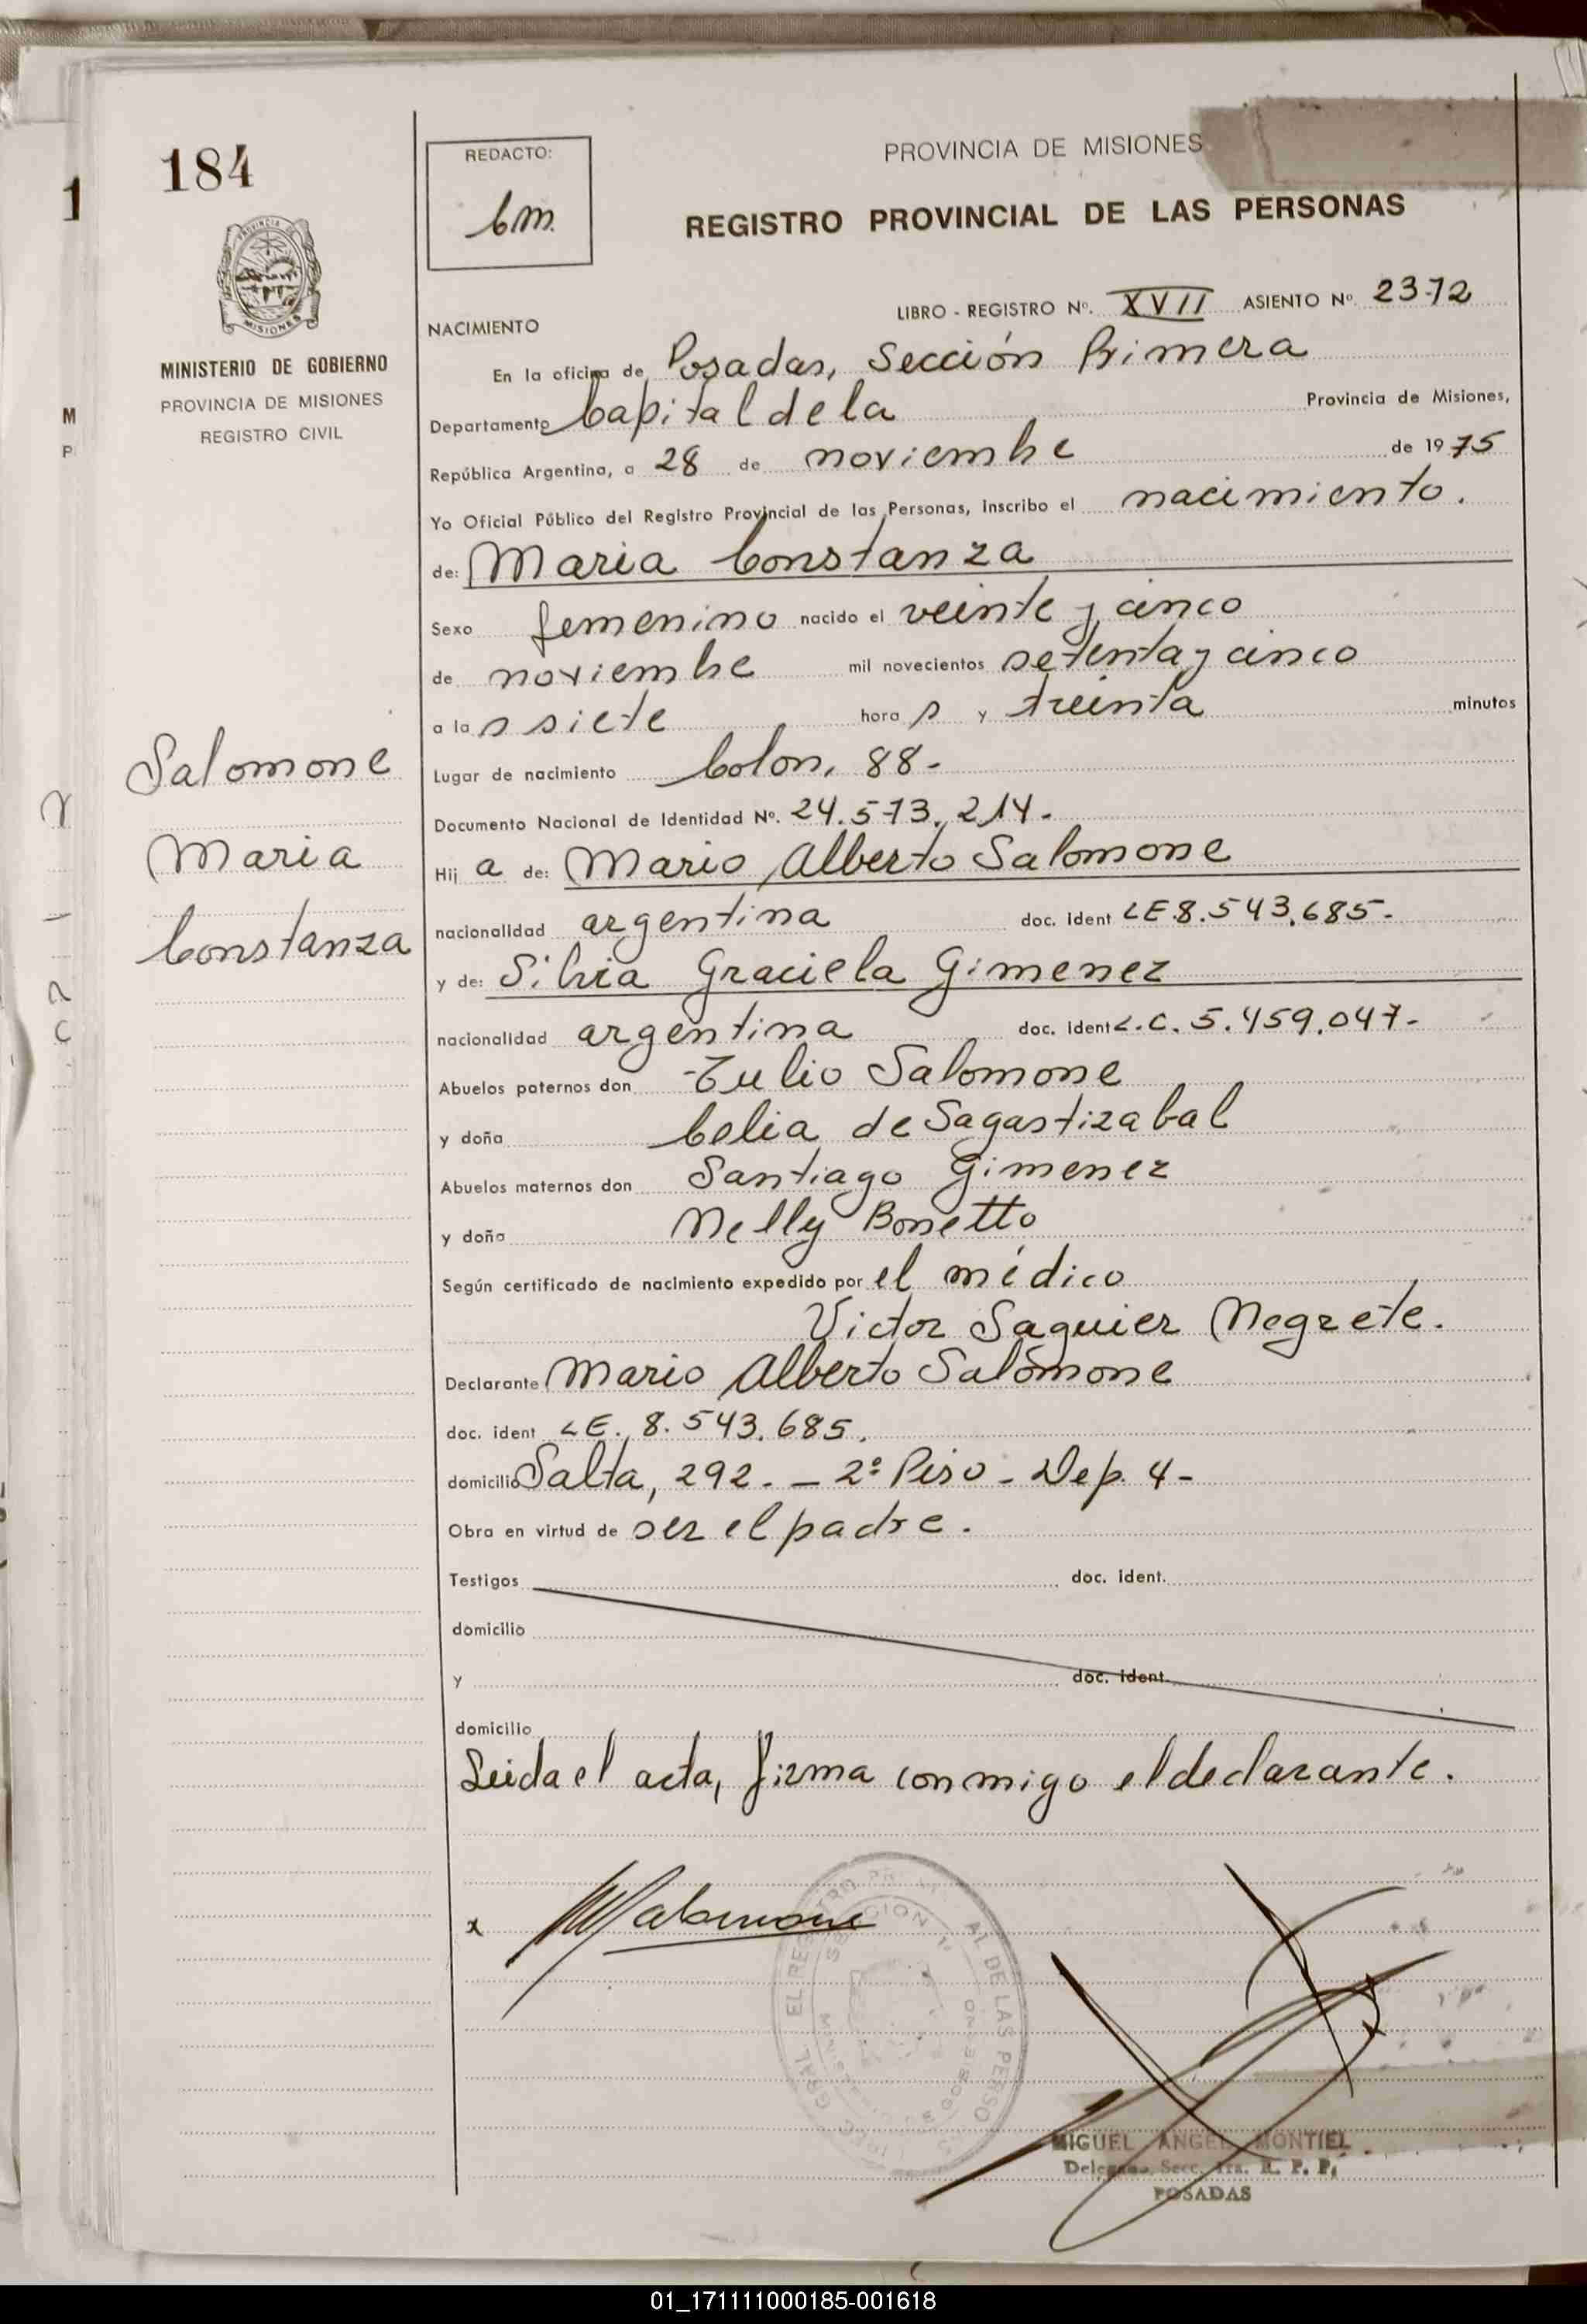 184
PROVINCIA DE
MISIONES
MINISTERIO DE GOBIERNO
PROVINCIA DE MISIONES
REGISTRO CIVIL
Salomone
Maria
Constanza
REDACTO:
PROVINCIA DE MISIONES
REGISTRO PROVINCIAL DE LAS PERSONAS
LIBRO - REGISTRO Nº. XVII ASIENTO Nº. 2372
NACIMIENTO
En la oficina de Posadas, Sección Primera
Departamento Capital de la Provincia de Misiones,
República Argentina, a 28 de noviembre de 1975
Yo Oficial Público del Registro Provincial de las Personas, Inscribo el nacimiento.
de: Maria Constanza
Sexo femenino nacido el veinte y cinco
de noviembre mil novecientos setenta y cinco
a la s siete hora s y treinta minutos
Lugar de nacimiento Colon, 88-
Documento Nacional de Identidad Nº. 24.573.214-
Hij a de: Mario Alberto Salomone
nacionalidad argentina doc. ident LE.8.543.685-
y de: Silvia Graciela Gimenez
nacionalidad argentina doc. ident L.C. 5.459.047-
Abuelos paternos don Tulio Salomone
y doña Celia de Sagastizabal
Abuelos maternos don Santiago Gimenez
y doña Nelly Bonetto
Según certificado de nacimiento expedido por el médico
Victor Saguier Negrete.
Declarante Mario Alberto Salomone
doc. ident LE. 8.543.685.
domicilio Salta, 292. - 2º Piso - Dep. 4-
Obra en virtud de ser el padre.
Testigos doc. ident.
domicilio
y doc. ident.
domicilio
Leida el acta, firma conmigo el declarante.
x MSalomone
MIGUEL ANGEL MONTIEL
Delegado Secc. 1ra. R. P. P.
POSADAS
01_171111000185-001618